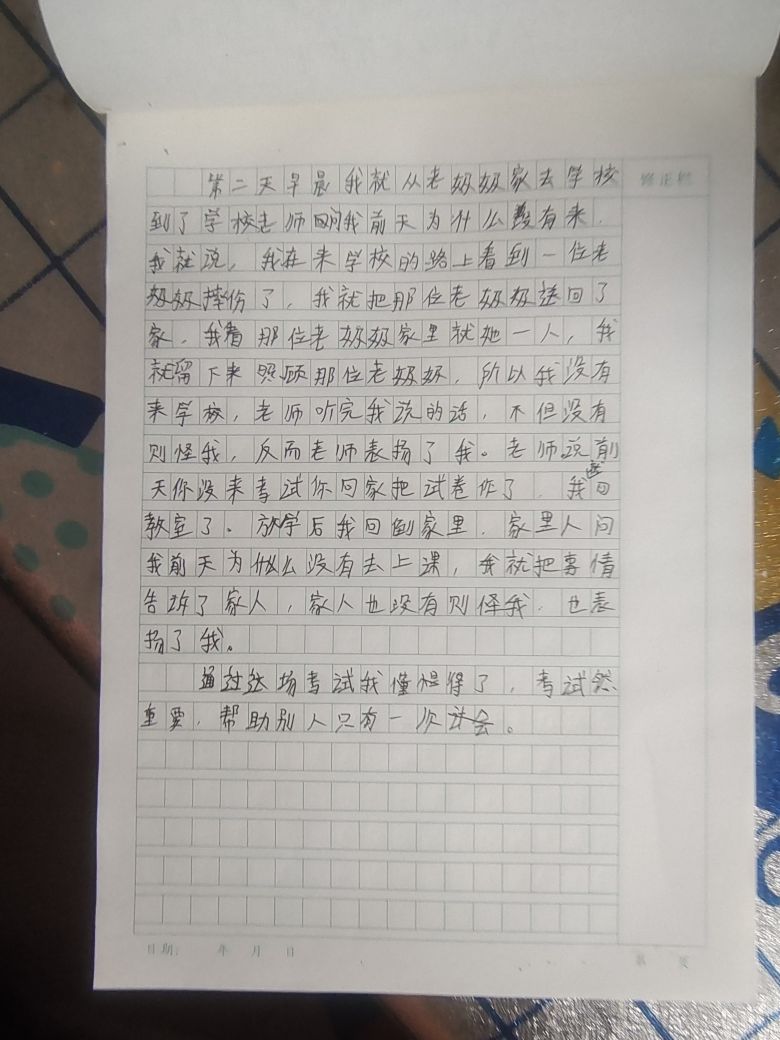 第二天早晨我就从老奶奶家去学校
修正栏
到了学校老师问我前天为什么没有来.
我就说,我在来学校的路上看到一位老
奶奶摔伤了,我就把那位老奶奶送回了
家.我看那位老奶奶家里就她一人,我
就留下来照顾那位老奶奶.所以我没有
来学校,老师听完我说的话,不但没有
则怪我,反而老师表扬了我。老师说前
天你没来考试你回家把试卷作了.我就回
教室了。放学后我回到家里.家里人问
我前天为什么没有去上课,我就把事情
告诉了家人,家人也没有则怪我.也表
扬了我。
通过这场考试我懂得了,考试然
重要,帮助别人只有一次
日期: 年 月 日
第 页